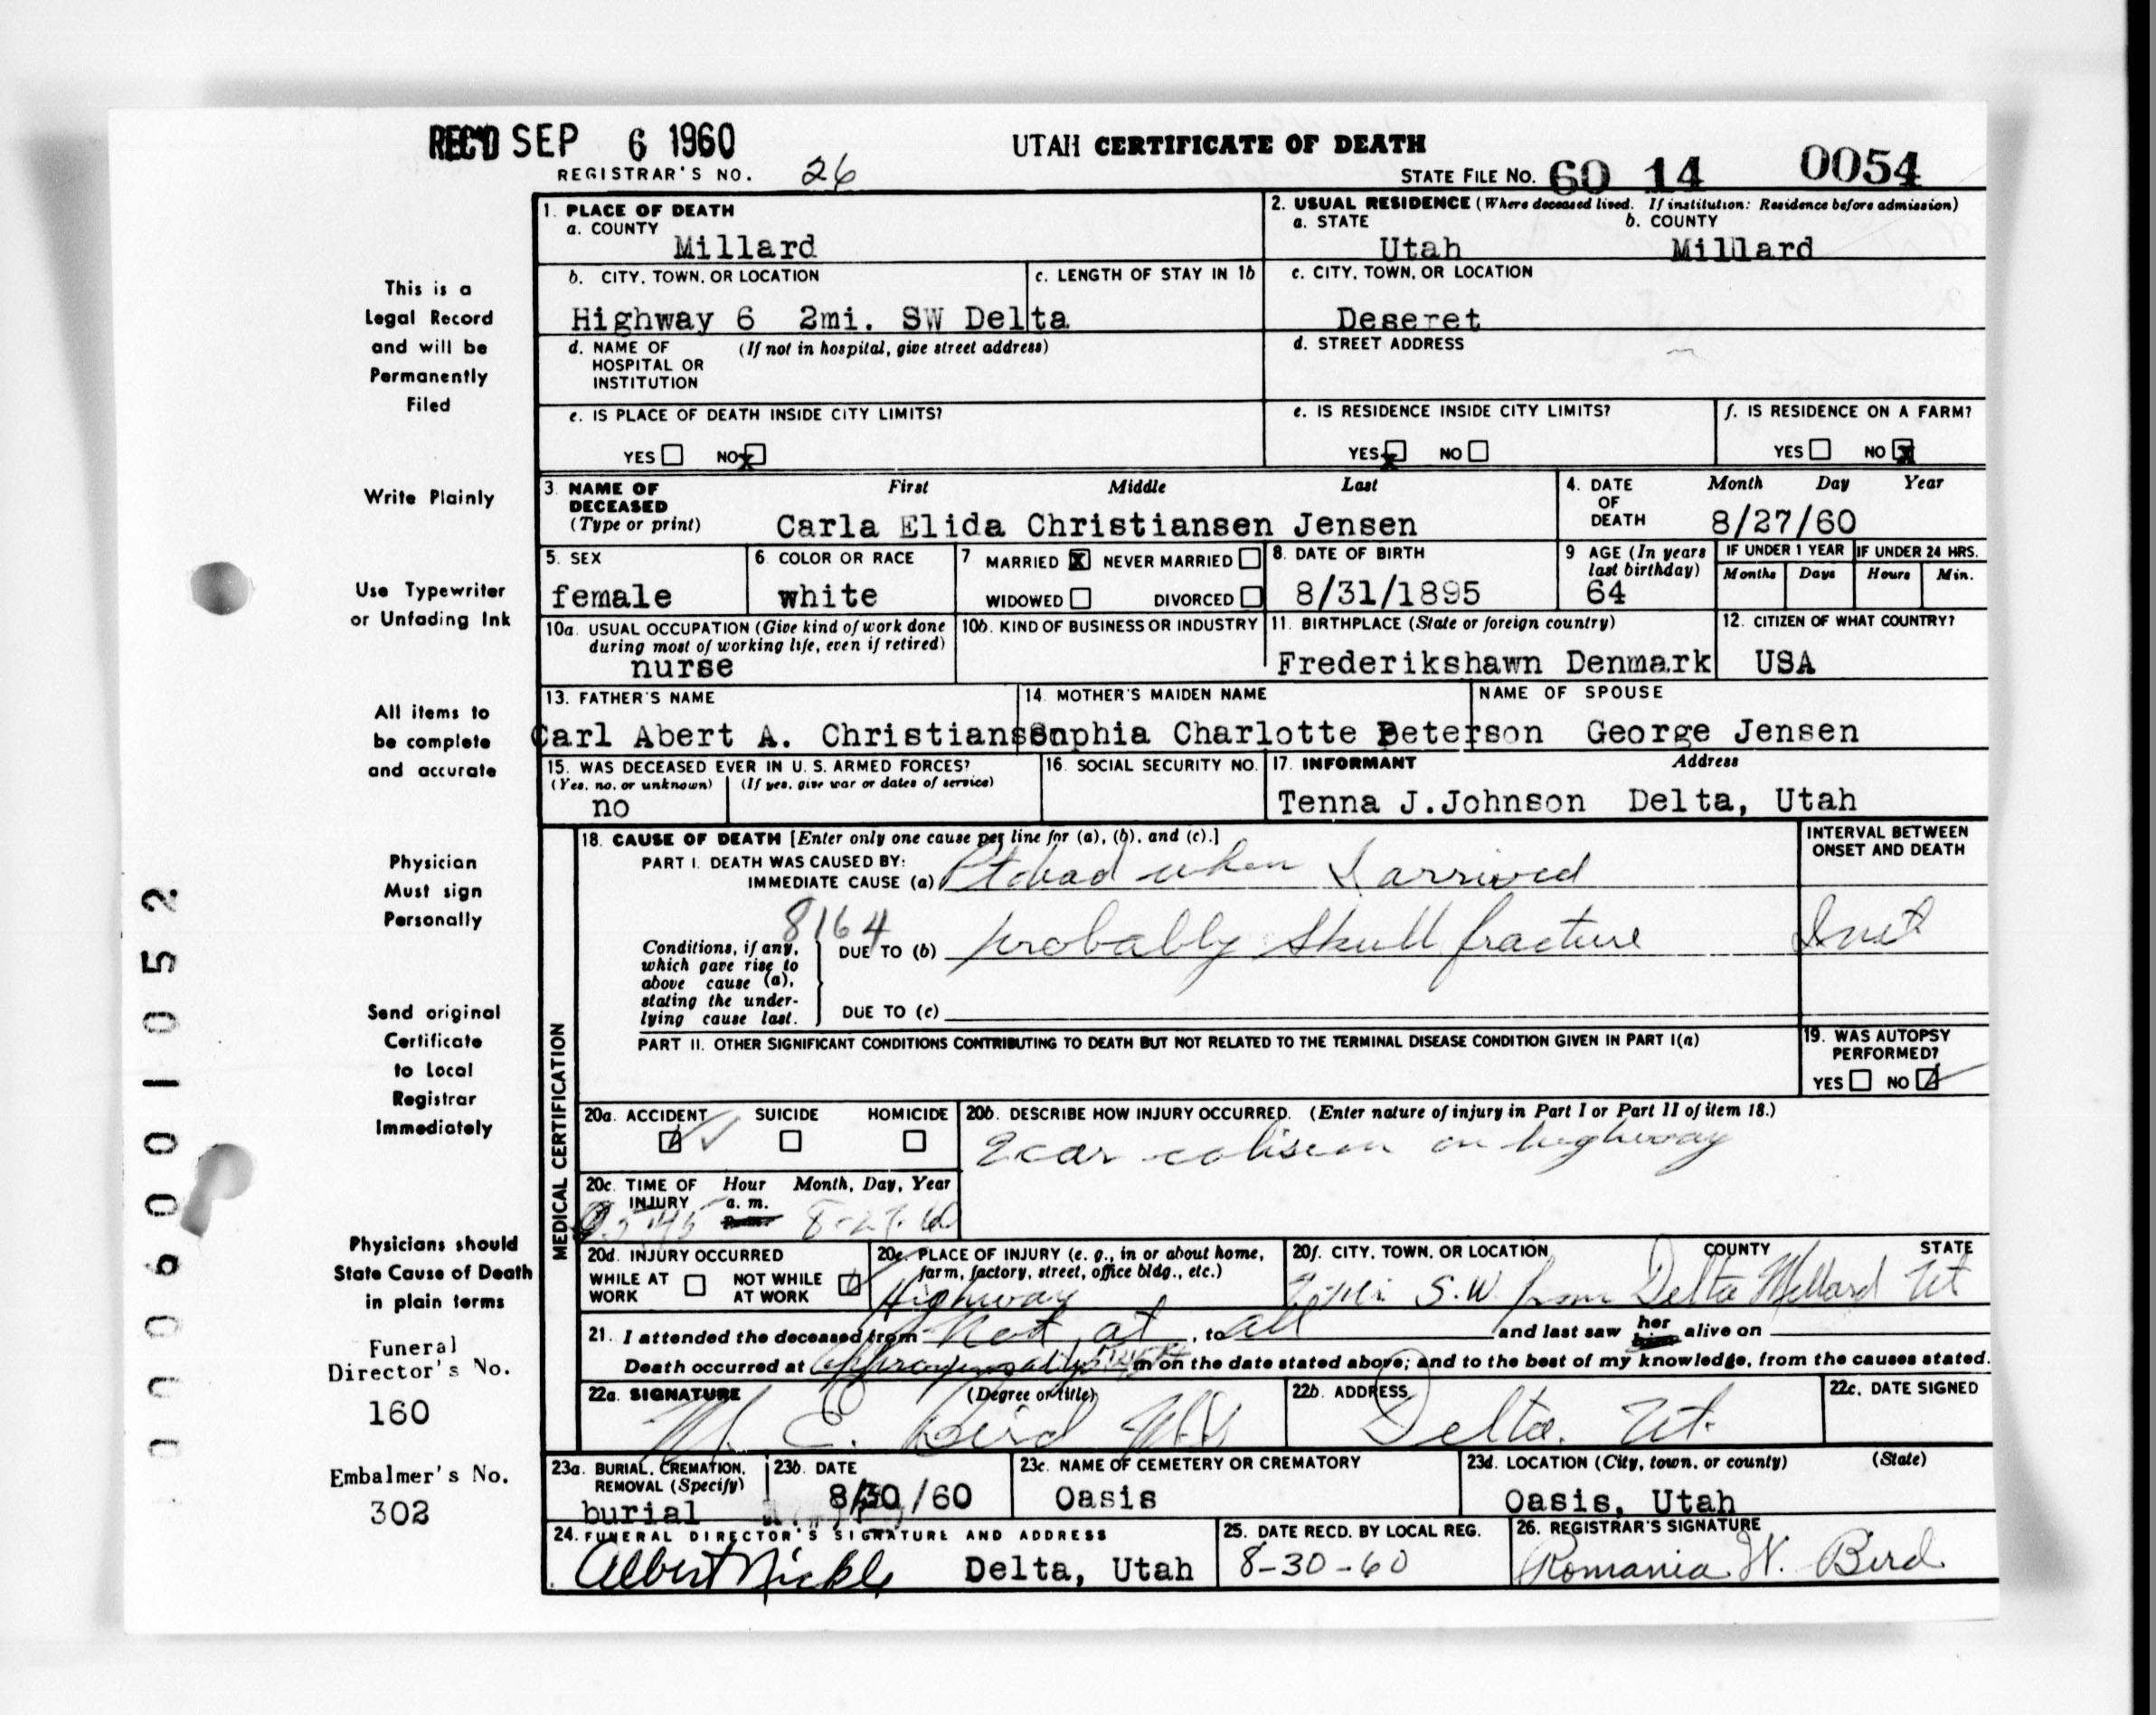 REC'D SEP 6 1960
UTAH CERTIFICATE OF DEATH
REGISTRAR'S NO. 26
STATE FILE NO. 60 14 0054
1. PLACE OF DEATH
a. COUNTY
Millard
2. USUAL RESIDENCE (Where deceased lived. If institution: Residence before admission)
a. STATE b. COUNTY
Utah Millard
b. CITY, TOWN, OR LOCATION c. LENGTH OF STAY IN 1b
Highway 6 2mi. SW Delta
c. CITY, TOWN, OR LOCATION
Deseret
d. NAME OF (If not in hospital, give street address)
HOSPITAL OR
INSTITUTION
d. STREET ADDRESS
e. IS PLACE OF DEATH INSIDE CITY LIMITS?
YES NO X
e. IS RESIDENCE INSIDE CITY LIMITS?
YES X NO
f. IS RESIDENCE ON A FARM?
YES NO X
This is a
Legal Record
and will be
Permanently
Filed
Write Plainly
3. NAME OF First Middle Last
DECEASED
(Type or print) Carla Elida Christiansen Jensen
4. DATE Month Day Year
OF
DEATH 8/27/60
Use Typewriter
or Unfading Ink
5. SEX
female
6. COLOR OR RACE
white
7 MARRIED X NEVER MARRIED
WIDOWED DIVORCED
8. DATE OF BIRTH
8/31/1895
9 AGE (In years
last birthday)
64
IF UNDER 1 YEAR IF UNDER 24 HRS.
Months Days Hours Min.
10a. USUAL OCCUPATION (Give kind of work done
during most of working life, even if retired)
nurse
10b. KIND OF BUSINESS OR INDUSTRY
11. BIRTHPLACE (State or foreign country)
Frederikshawn Denmark
12. CITIZEN OF WHAT COUNTRY?
USA
All items to
be complete
and accurate
13. FATHER'S NAME
Carl Abert A. Christiansen
14. MOTHER'S MAIDEN NAME
Sophia Charlotte Peterson
NAME OF SPOUSE
George Jensen
15. WAS DECEASED EVER IN U. S. ARMED FORCES?
(Yes, no, or unknown) (If yes, give war or dates of service)
no
16. SOCIAL SECURITY NO.
17. INFORMANT Address
Tenna J.Johnson Delta, Utah
Physician
Must sign
Personally
Send original
Certificate
to Local
Registrar
Immediately
Physicians should
State Cause of Death
in plain terms
MEDICAL CERTIFICATION
18. CAUSE OF DEATH [Enter only one cause per line for (a), (b), and (c).]
INTERVAL BETWEEN
ONSET AND DEATH
PART I. DEATH WAS CAUSED BY:
IMMEDIATE CAUSE (a) Pt dead when I arrived
8164
Conditions, if any,
which gave rise to
above cause (a),
stating the under-
lying cause last.
DUE TO (b) probably skull fracture Inst
DUE TO (c)
PART II. OTHER SIGNIFICANT CONDITIONS CONTRIBUTING TO DEATH BUT NOT RELATED TO THE TERMINAL DISEASE CONDITION GIVEN IN PART I(a)
19. WAS AUTOPSY
PERFORMED?
YES NO
20a. ACCIDENT SUICIDE HOMICIDE
20b. DESCRIBE HOW INJURY OCCURRED. (Enter nature of injury in Part I or Part II of item 18.)
2 car colision on highway
20c. TIME OF Hour Month, Day, Year
INJURY a. m.
8-27-60
20d. INJURY OCCURRED
WHILE AT NOT WHILE
WORK AT WORK
20e. PLACE OF INJURY (e. g., in or about home,
farm, factory, street, office bldg., etc.)
Highway
20f. CITY, TOWN, OR LOCATION COUNTY STATE
2 mi. S.W. from Delta Millard Ut
21. I attended the deceased from Not at, to all and last saw her him alive on
Death occurred at m on the date stated above; and to the best of my knowledge, from the causes stated.
22a. SIGNATURE (Degree or title)
M. E. Bird M.D.
22b. ADDRESS
Delta. Ut.
22c. DATE SIGNED
Funeral
Director's No.
160
Embalmer's No.
302
23a. BURIAL, CREMATION,
REMOVAL (Specify)
burial
23b. DATE
8/30/60
23c. NAME OF CEMETERY OR CREMATORY
Oasis
23d. LOCATION (City, town, or county) (State)
Oasis, Utah
24. FUNERAL DIRECTOR'S SIGNATURE AND ADDRESS
Albert Nickle Delta, Utah
25. DATE RECD. BY LOCAL REG.
8-30-60
26. REGISTRAR'S SIGNATURE
Romania W. Bird
0006001052